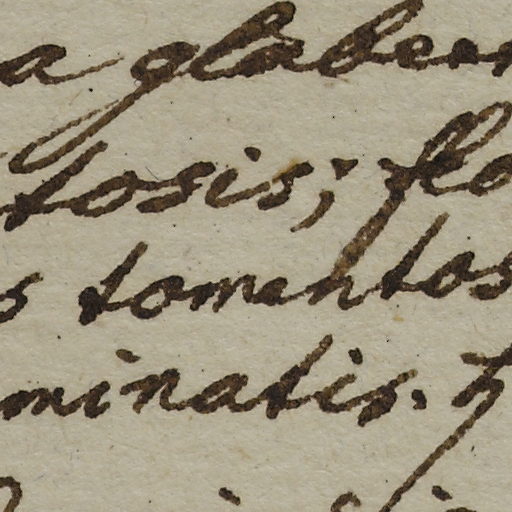 a glaber
tosis; flo
s tomentos
minatis. ♄